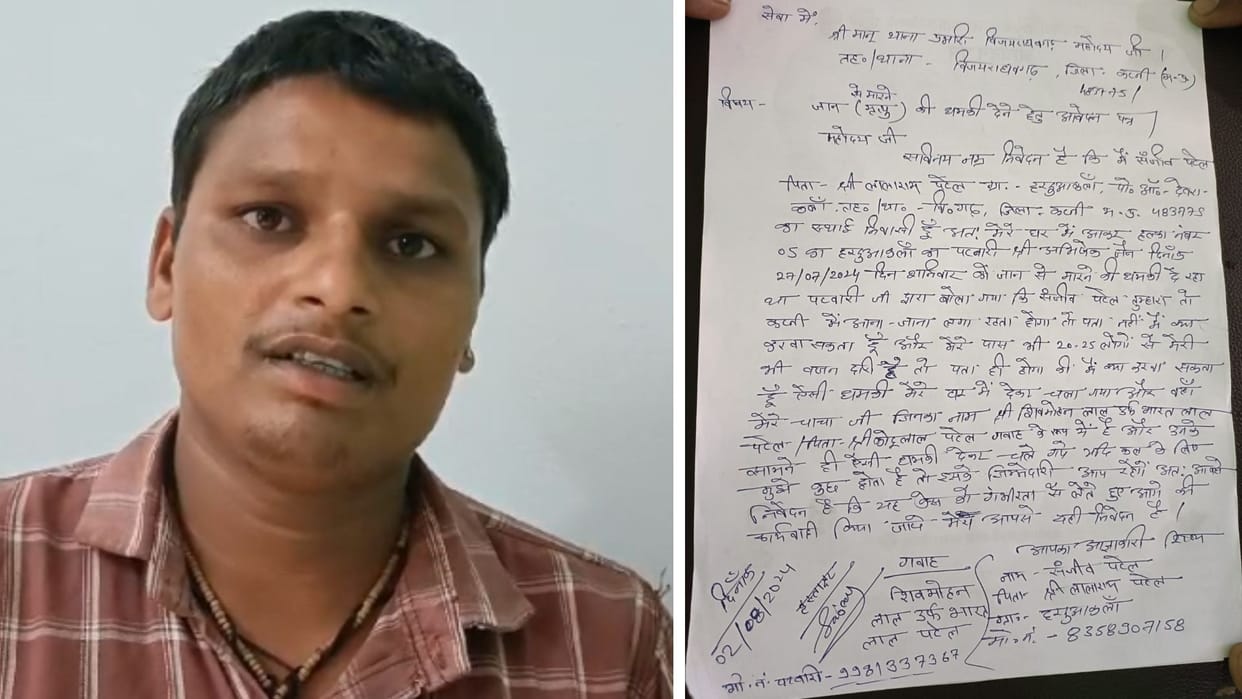 सेवा में,
श्रीमान् थाना प्रभारी विजयराघवगढ़ महोदय जी ।
तह०/थाना - विजयराघवगढ़, जिला. कटनी (म.प्र)
483775/
विषय - जान से मारने (मृत्यु) की धमकी देने हेतु आवेदन पत्र /
महोदय जी
सविनय नम्र निवेदन है कि मैं संजीव पटेल
पिता - श्री लालाराम पटेल ग्रा. - हरदुआकलाँ, पो० ऑ०- देवरा-
कलाँ, तह०/था० - वि०गढ़, जिला. कटनी म.प्र. 483775
का स्थाई निवासी हूँ अतः मेरे घर में आकर हल्का नंबर
05 का हरदुआकलाँ का पटवारी श्री अभिषेक जैन दिनाँक
27/07/2024 दिन शनिवार को जान से मारने की धमकी दे रहा
था पटवारी जी द्वारा बोला गया कि संजीव पटेल तुम्हारा तो
कटनी में आना-जाना लगा रहता होगा तो पता नहीं मैं क्या
करवा सकता हूँ और मेरे पास भी 20-25 लोगों से मेरी
भी वजन दारी है तो पता ही होगा की मैं क्या करवा सकता
हूँ ऐसी धमकी मेरे घर में देकर चला गया और वहाँ
मेरे चाचा जी जिनका नाम श्री शिवमोहन लाल उर्फ भारत लाल
पटेल/पिता- श्री लाल पटेल गवाह के रूप में है और उनके
सामने ही ऐसी धमकी देकर चले गये यदि कल के लिए
मुझे कुछ होता है तो इसके जिम्मेदारी आप रहेंगे अतः आपसे
निवेदन है कि यह केस को गंभीरता से लेते हुए आगे की
कार्यवाही किया जाये - मेरा आपसे यही निवेदन है।
आपका आज्ञाकारी शिष्य
नाम - संजीव पटेल
पिता श्री लालाराम पटेल
ग्रा०- हरदुआकलाँ
मो. नं. - 8358907158
गवाह
शिवमोहन
लाल उर्फ भारत
लाल पटेल
हस्ताक्षर
दिनाँक
02/08/2024
मो. नं. पटवारी - 9981337367